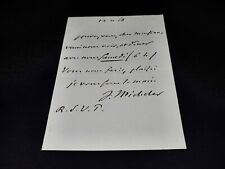 pouvez vous, cher monsieur
venir nous voir, et dîner
avec nous samedi 6 h
Vous nous ferez plaisir
je vous serre la main.
J. Michelet
R. S. V. P.